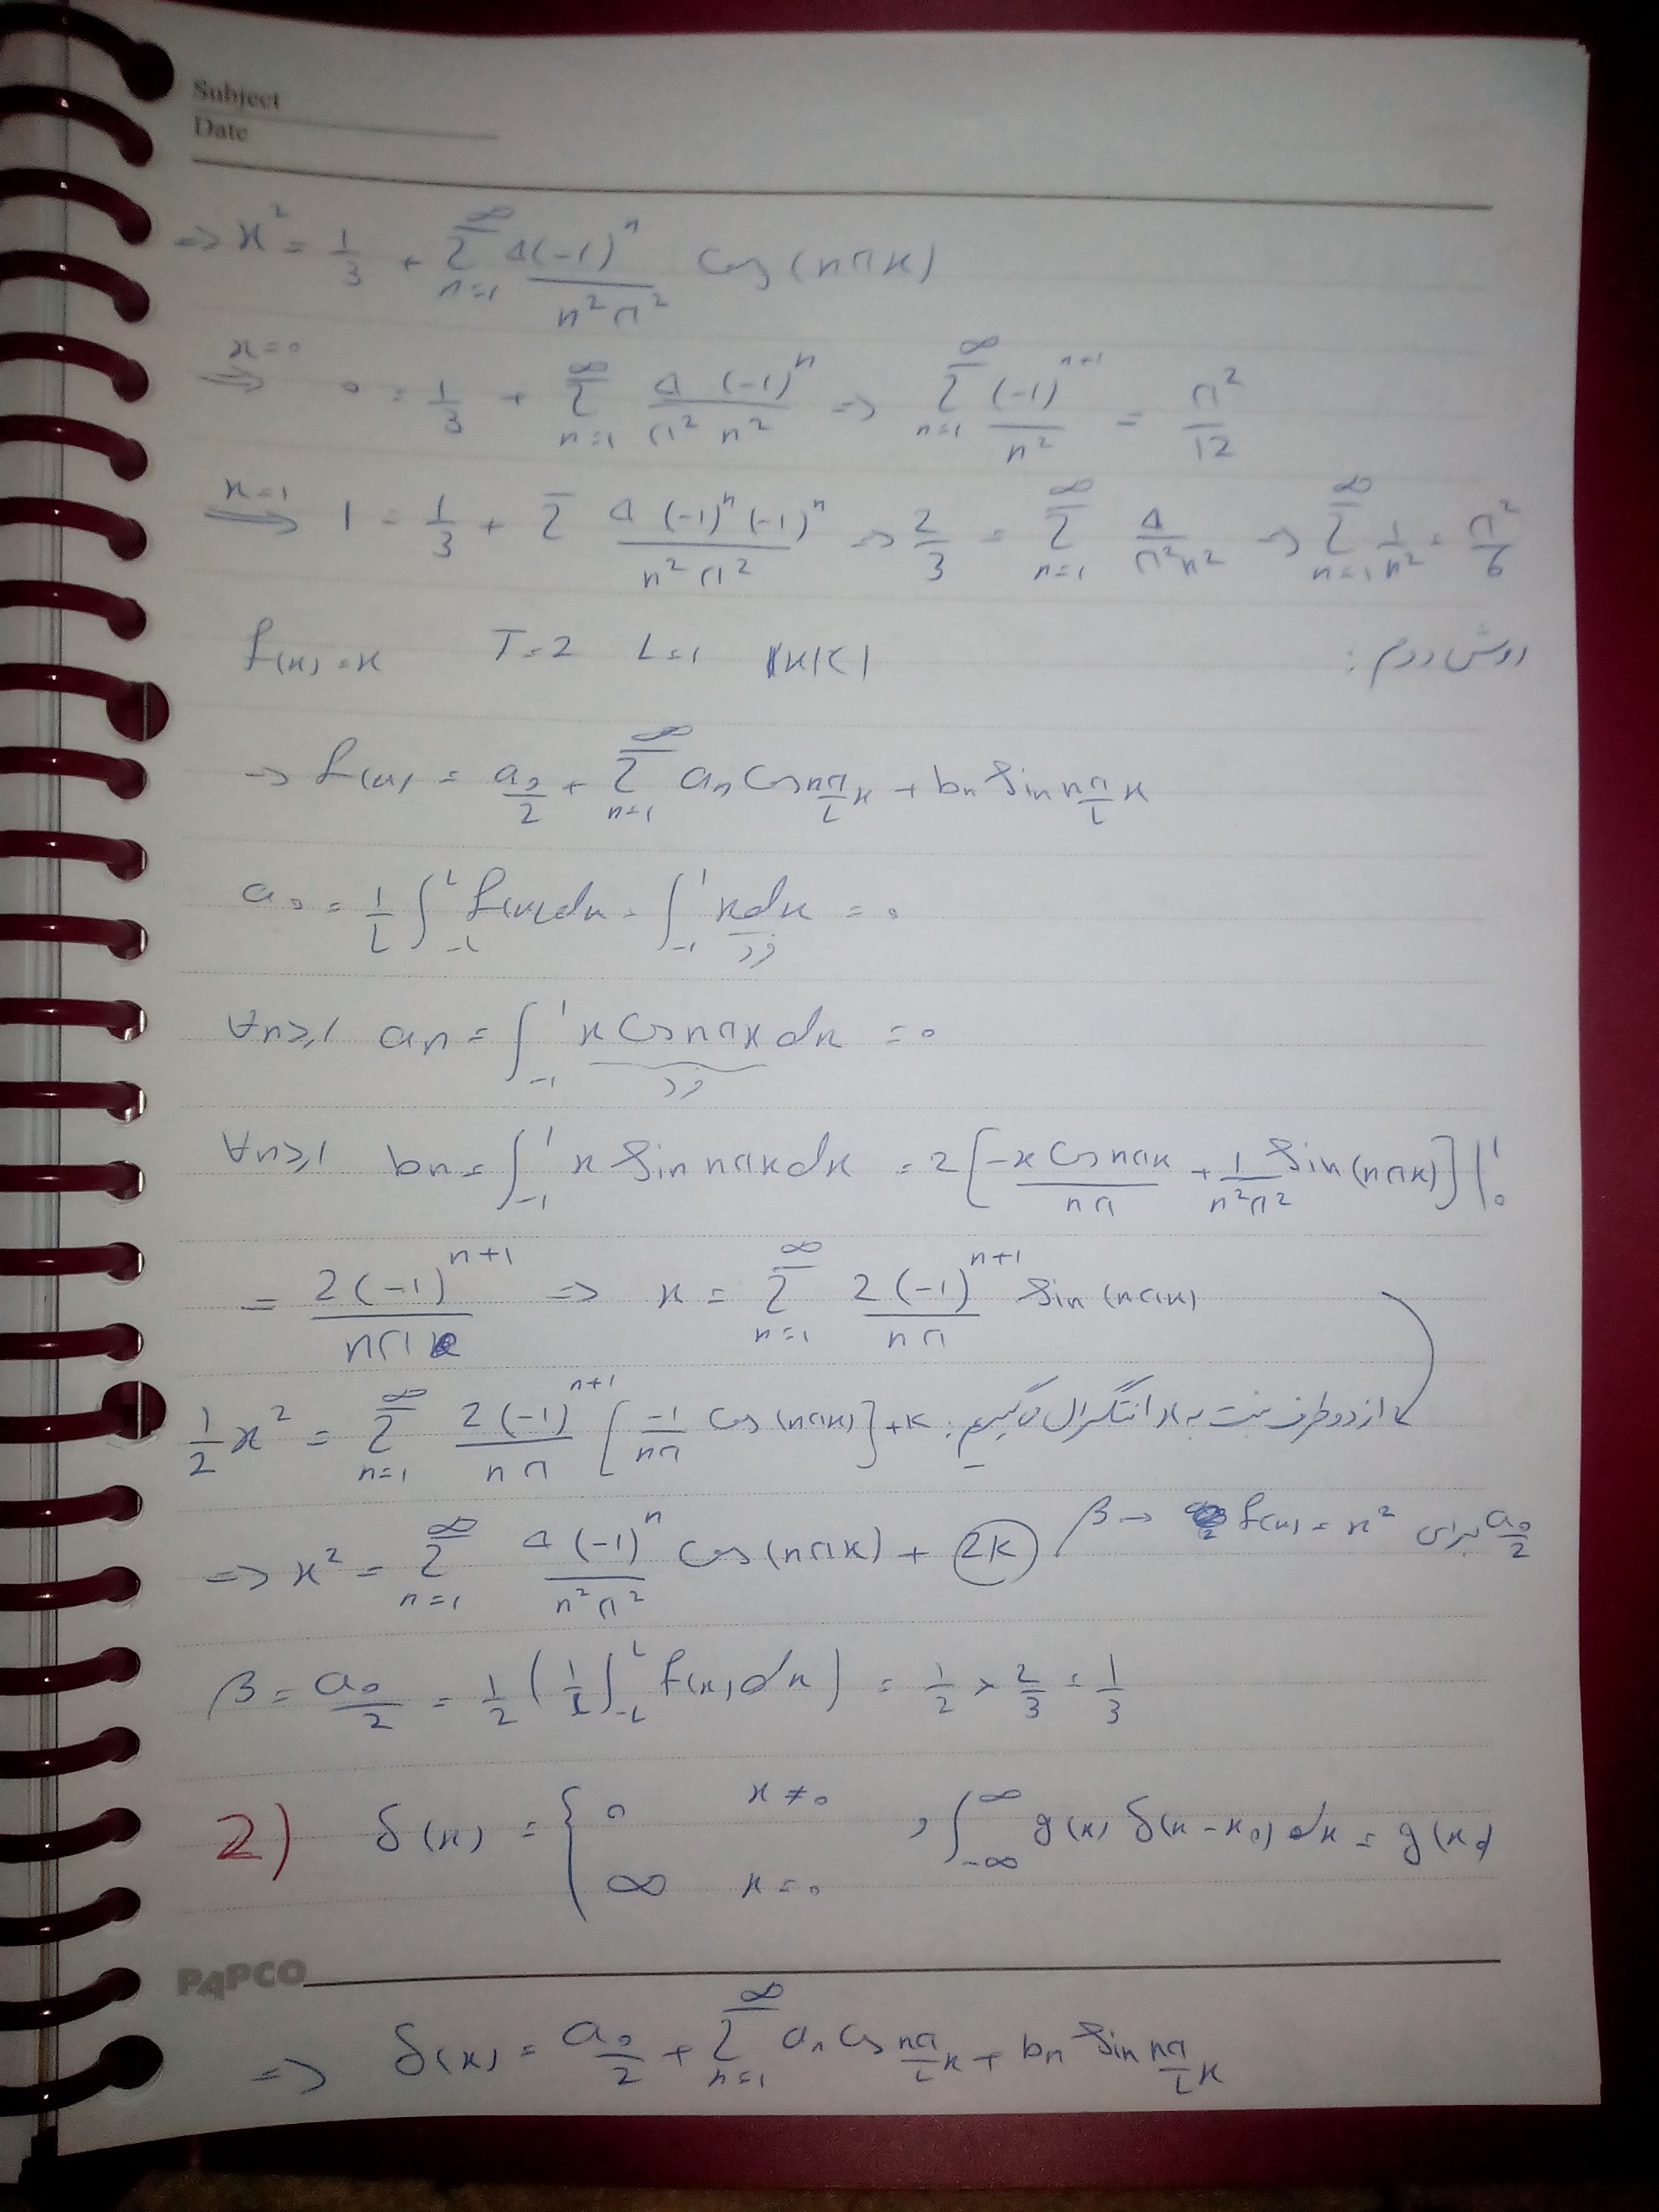 Subject
Date
=> x² = 1/3 + ∑_{n=1}^{∞} 4(-1)^n / n²π² cos(nπx)
x=0 => 0 = 1/3 + ∑_{n=1}^{∞} 4(-1)^n / π²n² => ∑_{n=1}^{∞} (-1)^{n+1} / n² = π²/12
x=1 => 1 = 1/3 + ∑ 4(-1)^n(-1)^n / n²π² => 2/3 = ∑_{n=1}^{∞} 4 / π²n² => ∑_{n=1}^{∞} 1/n² = π²/6
روش دوم: f(x)=x T=2 L=1 |x|<1
→ f(x) = a₀/2 + ∑_{n=1}^{∞} aₙ Cos nπ/L x + bₙ Sin nπ/L x
a₀ = 1/L ∫_{-L}^{L} f(x)dx = ∫_{-1}^{1} xdx = 0
فرد
∀n≥1 aₙ = ∫_{-1}^{1} x Cos nπx dx = 0
فرد
∀n≥1 bₙ = ∫_{-1}^{1} x Sin nπx dx = 2[-x Cos nπx / nπ + 1/n²π² Sin(nπx)] |₀¹
= 2(-1)^{n+1} / nπ => x = ∑_{n=1}^{∞} 2(-1)^{n+1} / nπ Sin(nπx)
از دو طرف نسبت به x انتگرال میگیریم: 1/2 x² = ∑_{n=1}^{∞} 2(-1)^{n+1} / nπ [-1/nπ Cos(nπx)] + K
=> x² = ∑_{n=1}^{∞} 4(-1)^n / n²π² Cos(nπx) + 2K β → a₀/2 برای f(x) = x²
β = a₀/2 = 1/2 (1/L ∫_{-L}^{L} f(x)dx) = 1/2 × 2/3 = 1/3
2) δ(x) = { 0 x≠0 , ∞ x=0 , ∫_{-∞}^{∞} g(x) δ(x-x₀) dx = g(x₀)
PAPCO
=> δ(x) = a₀/2 + ∑_{n=1}^{∞} aₙ Cos nπ/L x + bₙ Sin nπ/L x